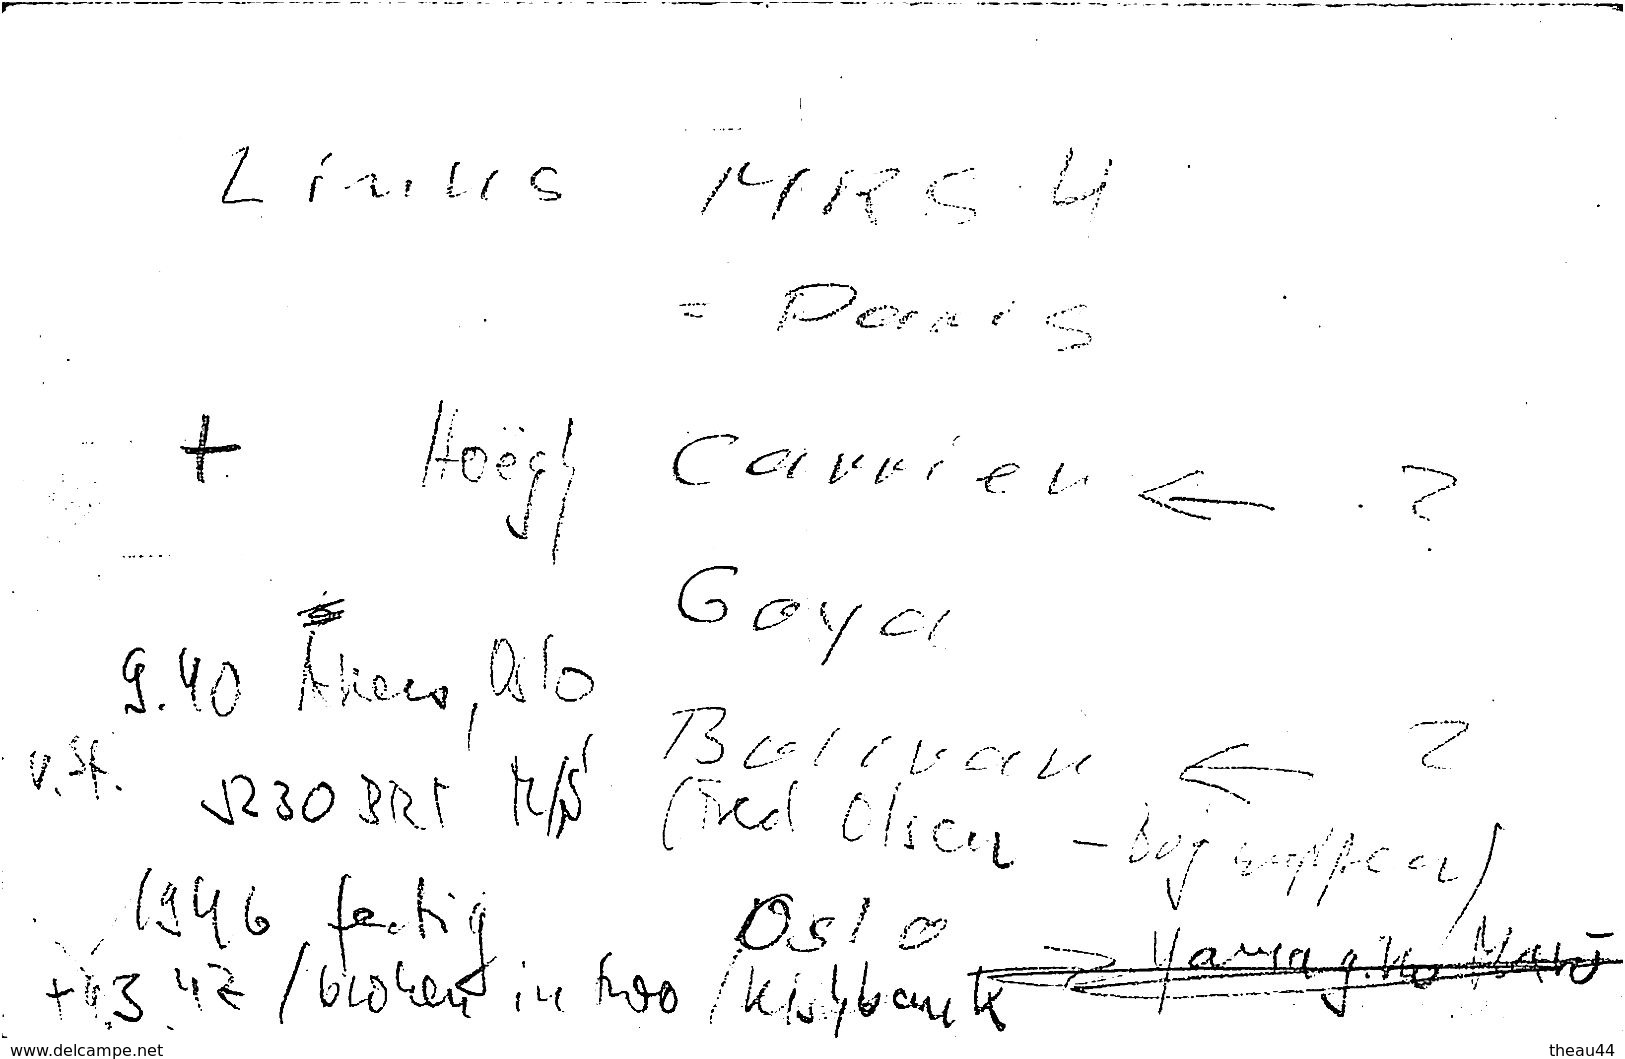 Linus MRS.4
= Paris
+ Hoëgh Carrier ← ?
Goya
9.40 Akers, Oslo
v.St. Bolivar ← ?
5230 BRT M/S (Fred Olsen –
1946 fertig Oslo
+4.3.47 /broken in two /Kishbank
www.delcampe.net
theau44